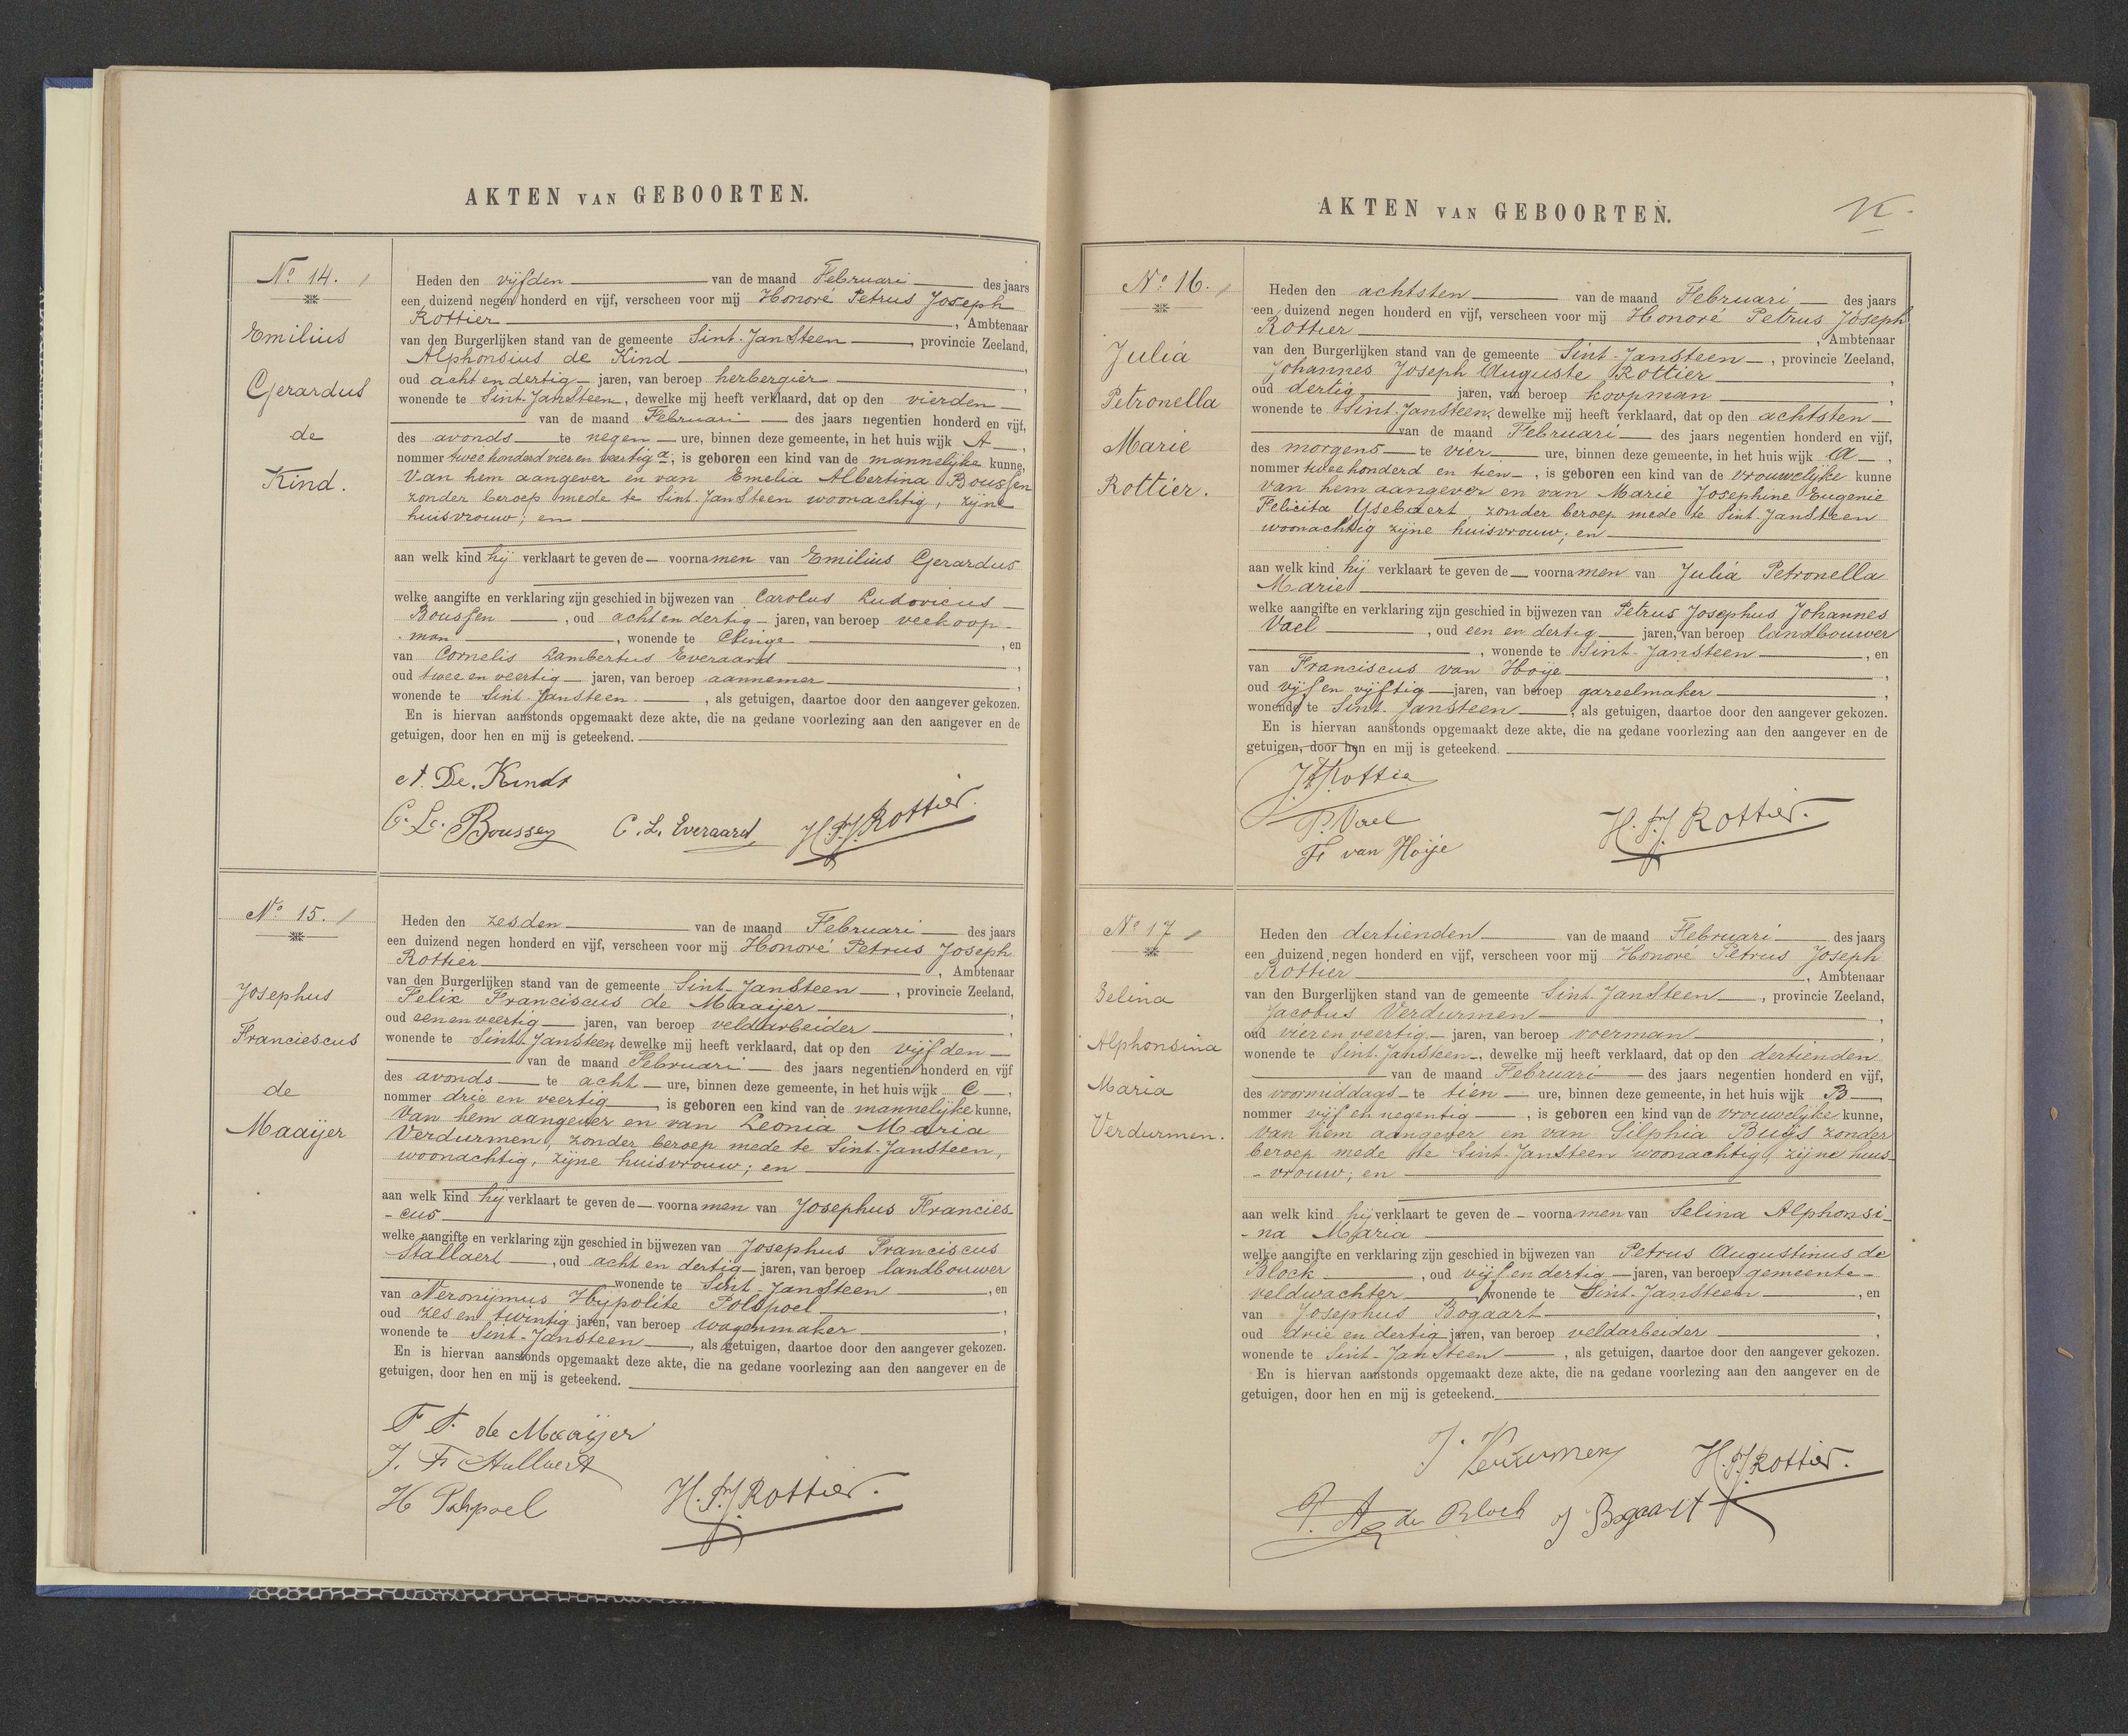 AKTEN VAN GEBOORTEN.
No. 14.
Emilius
Gerardus
de
Kind.
Heden den vijfden van de maand Februari des jaars
een duizend negen honderd en vijf, verscheen voor mij Honoré Petrus Joseph
Rottier, Ambtenaar
van den Burgerlijken stand van de gemeente Sint-JanSteen, provincie Zeeland,
Alphonsius de Kind,
oud acht en dertig jaren, van beroep herbergier,
wonende te Sint-JanSteen, dewelke mij heeft verklaard, dat op den vierden
van de maand Februari des jaars negentien honderd en vijf,
des avonds te negen ure, binnen deze gemeente, in het huis wijk A,
nommer twee honderd vier en veertig a, is geboren een kind van de mannelijke kunne,
Van hem aangever en van Emelia Albertina Boussen
zonder beroep mede te Sint-JanSteen woonachtig, zijne
huisvrouw; en
aan welk kind hij verklaart te geven de voornamen van Emilius Gerardus
welke aangifte en verklaring zijn geschied in bijwezen van Carolus Ludovicus
Boussen, oud acht en dertig jaren, van beroep veekoop-
-man, wonende te Clinge, en
van Cornelis Lambertus Everaard,
oud twee en veertig jaren, van beroep aannemer,
wonende te Sint-Jansteen, als getuigen, daartoe door den aangever gekozen.
En is hiervan aanstonds opgemaakt deze akte, die na gedane voorlezing aan den aangever en de
getuigen, door hen en mij is geteekend.
A. De. Kindt
C. L. Boussen C. L. Everaard H.P.J. Rottier.
No. 15.
Josephus
Franciescus
de
Maaijer
Heden den zesden van de maand Februari des jaars
een duizend negen honderd en vijf, verscheen voor mij Honoré Petrus Joseph
Rottier, Ambtenaar
van den Burgerlijken stand van de gemeente Sint-JanSteen, provincie Zeeland,
Felix Franciscus de Maaijer,
oud een en veertig jaren, van beroep veldarbeider,
wonende te Sint-Jansteen dewelke mij heeft verklaard, dat op den vijfden
van de maand Februari des jaars negentien honderd en vijf
des avonds te acht ure, binnen deze gemeente, in het huis wijk C,
nommer drie en veertig, is geboren een kind van de mannelijke kunne,
Van hem aangever en van Leonia Maria
Verdurmen, zonder beroep mede te Sint-Jansteen,
woonachtig, zijne huisvrouw; en
aan welk kind hij verklaart te geven de voornamen van Josephus Francies-
-cus
welke aangifte en verklaring zijn geschied in bijwezen van Josephus Franciscus
Stallaert, oud acht en dertig jaren, van beroep landbouwer
wonende te Sint-JanSteen, en
van Neronijmus Hijpolite Polspoel,
oud zes en twintig jaren, van beroep wagenmaker,
wonende te Sint-Jansteen, als getuigen, daartoe door den aangever gekozen.
En is hiervan aanstonds opgemaakt deze akte, die na gedane voorlezing aan den aangever en de
getuigen, door hen en mij is geteekend.
F F. de Maaijer
J. F Stallaert
H Polspoel H.P.J. Rottier.
AKTEN VAN GEBOORTEN.
No. 16.
Julia
Petronella
Marie
Rottier.
Heden den achtsten van de maand Februari des jaars
een duizend negen honderd en vijf, verscheen voor mij Honoré Petrus Joseph
Rottier, Ambtenaar
van den Burgerlijken stand van de gemeente Sint-Jansteen, provincie Zeeland,
Johannes Joseph Auguste Rottier,
oud dertig jaren, van beroep koopman,
wonende te Sint-Jansteen, dewelke mij heeft verklaard, dat op den achtsten
van de maand Februari des jaars negentien honderd en vijf,
des morgens te vier ure, binnen deze gemeente, in het huis wijk A,
nommer twee honderd en tien, is geboren een kind van de vrouwelijke kunne
Van hem aangever en van Marie Josephine Eugenie
Felicita Ysebaert, zonder beroep mede te Sint-Jansteen
woonachtig zijne huisvrouw; en
aan welk kind hij verklaart te geven de voornamen van Julia Petronella
Marie
welke aangifte en verklaring zijn geschied in bijwezen van Petrus Josephus Johannes
Vael, oud een en dertig jaren, van beroep landbouwer
, wonende te Sint-Jansteen, en
van Franciscus van Hoije,
oud vijf en vijftig jaren, van beroep gareelmaker,
wonende te Sint-Jansteen, als getuigen, daartoe door den aangever gekozen.
En is hiervan aanstonds opgemaakt deze akte, die na gedane voorlezing aan den aangever en de
getuigen, door hen en mij is geteekend.
Rottier
P. Vael H.P.J. Rottier.
Fr van Hoije
No 17
Selina
Alphonsina
Maria
Verdurmen.
Heden den dertienden van de maand Februari des jaars
een duizend negen honderd en vijf, verscheen voor mij Honoré Petrus Joseph
Rottier, Ambtenaar
van den Burgerlijken stand van de gemeente Sint-JanSteen, provincie Zeeland,
Jacobus Verdurmen,
oud vier en veertig jaren, van beroep voerman,
wonende te Sint-Jansteen, dewelke mij heeft verklaard, dat op den dertienden
van de maand Februari des jaars negentien honderd en vijf,
des voormiddags te tien ure, binnen deze gemeente, in het huis wijk B,
nommer vijf en negentig, is geboren een kind van de vrouwelijke kunne,
van hem aangever en van Silphia Buijs zonder
beroep mede te Sint-JanSteen woonachtig, zijne huis-
-vrouw; en
aan welk kind hij verklaart te geven de voornamen van Selina Alphonsi-
-na Maria
welke aangifte en verklaring zijn geschied in bijwezen van Petrus Augustinus de
Block, oud vijf en dertig jaren, van beroep gemeente-
veldwachter, wonende te Sint-Jansteen, en
van Josephus Bogaart,
oud drie en dertig jaren, van beroep veldarbeider,
wonende te Sint-JanSteen, als getuigen, daartoe door den aangever gekozen.
En is hiervan aanstonds opgemaakt deze akte, die na gedane voorlezing aan den aangever en de
getuigen, door hen en mij is geteekend.
J. Verdurmen H.P.J. Rottier.
P. A de Block J Bogaart